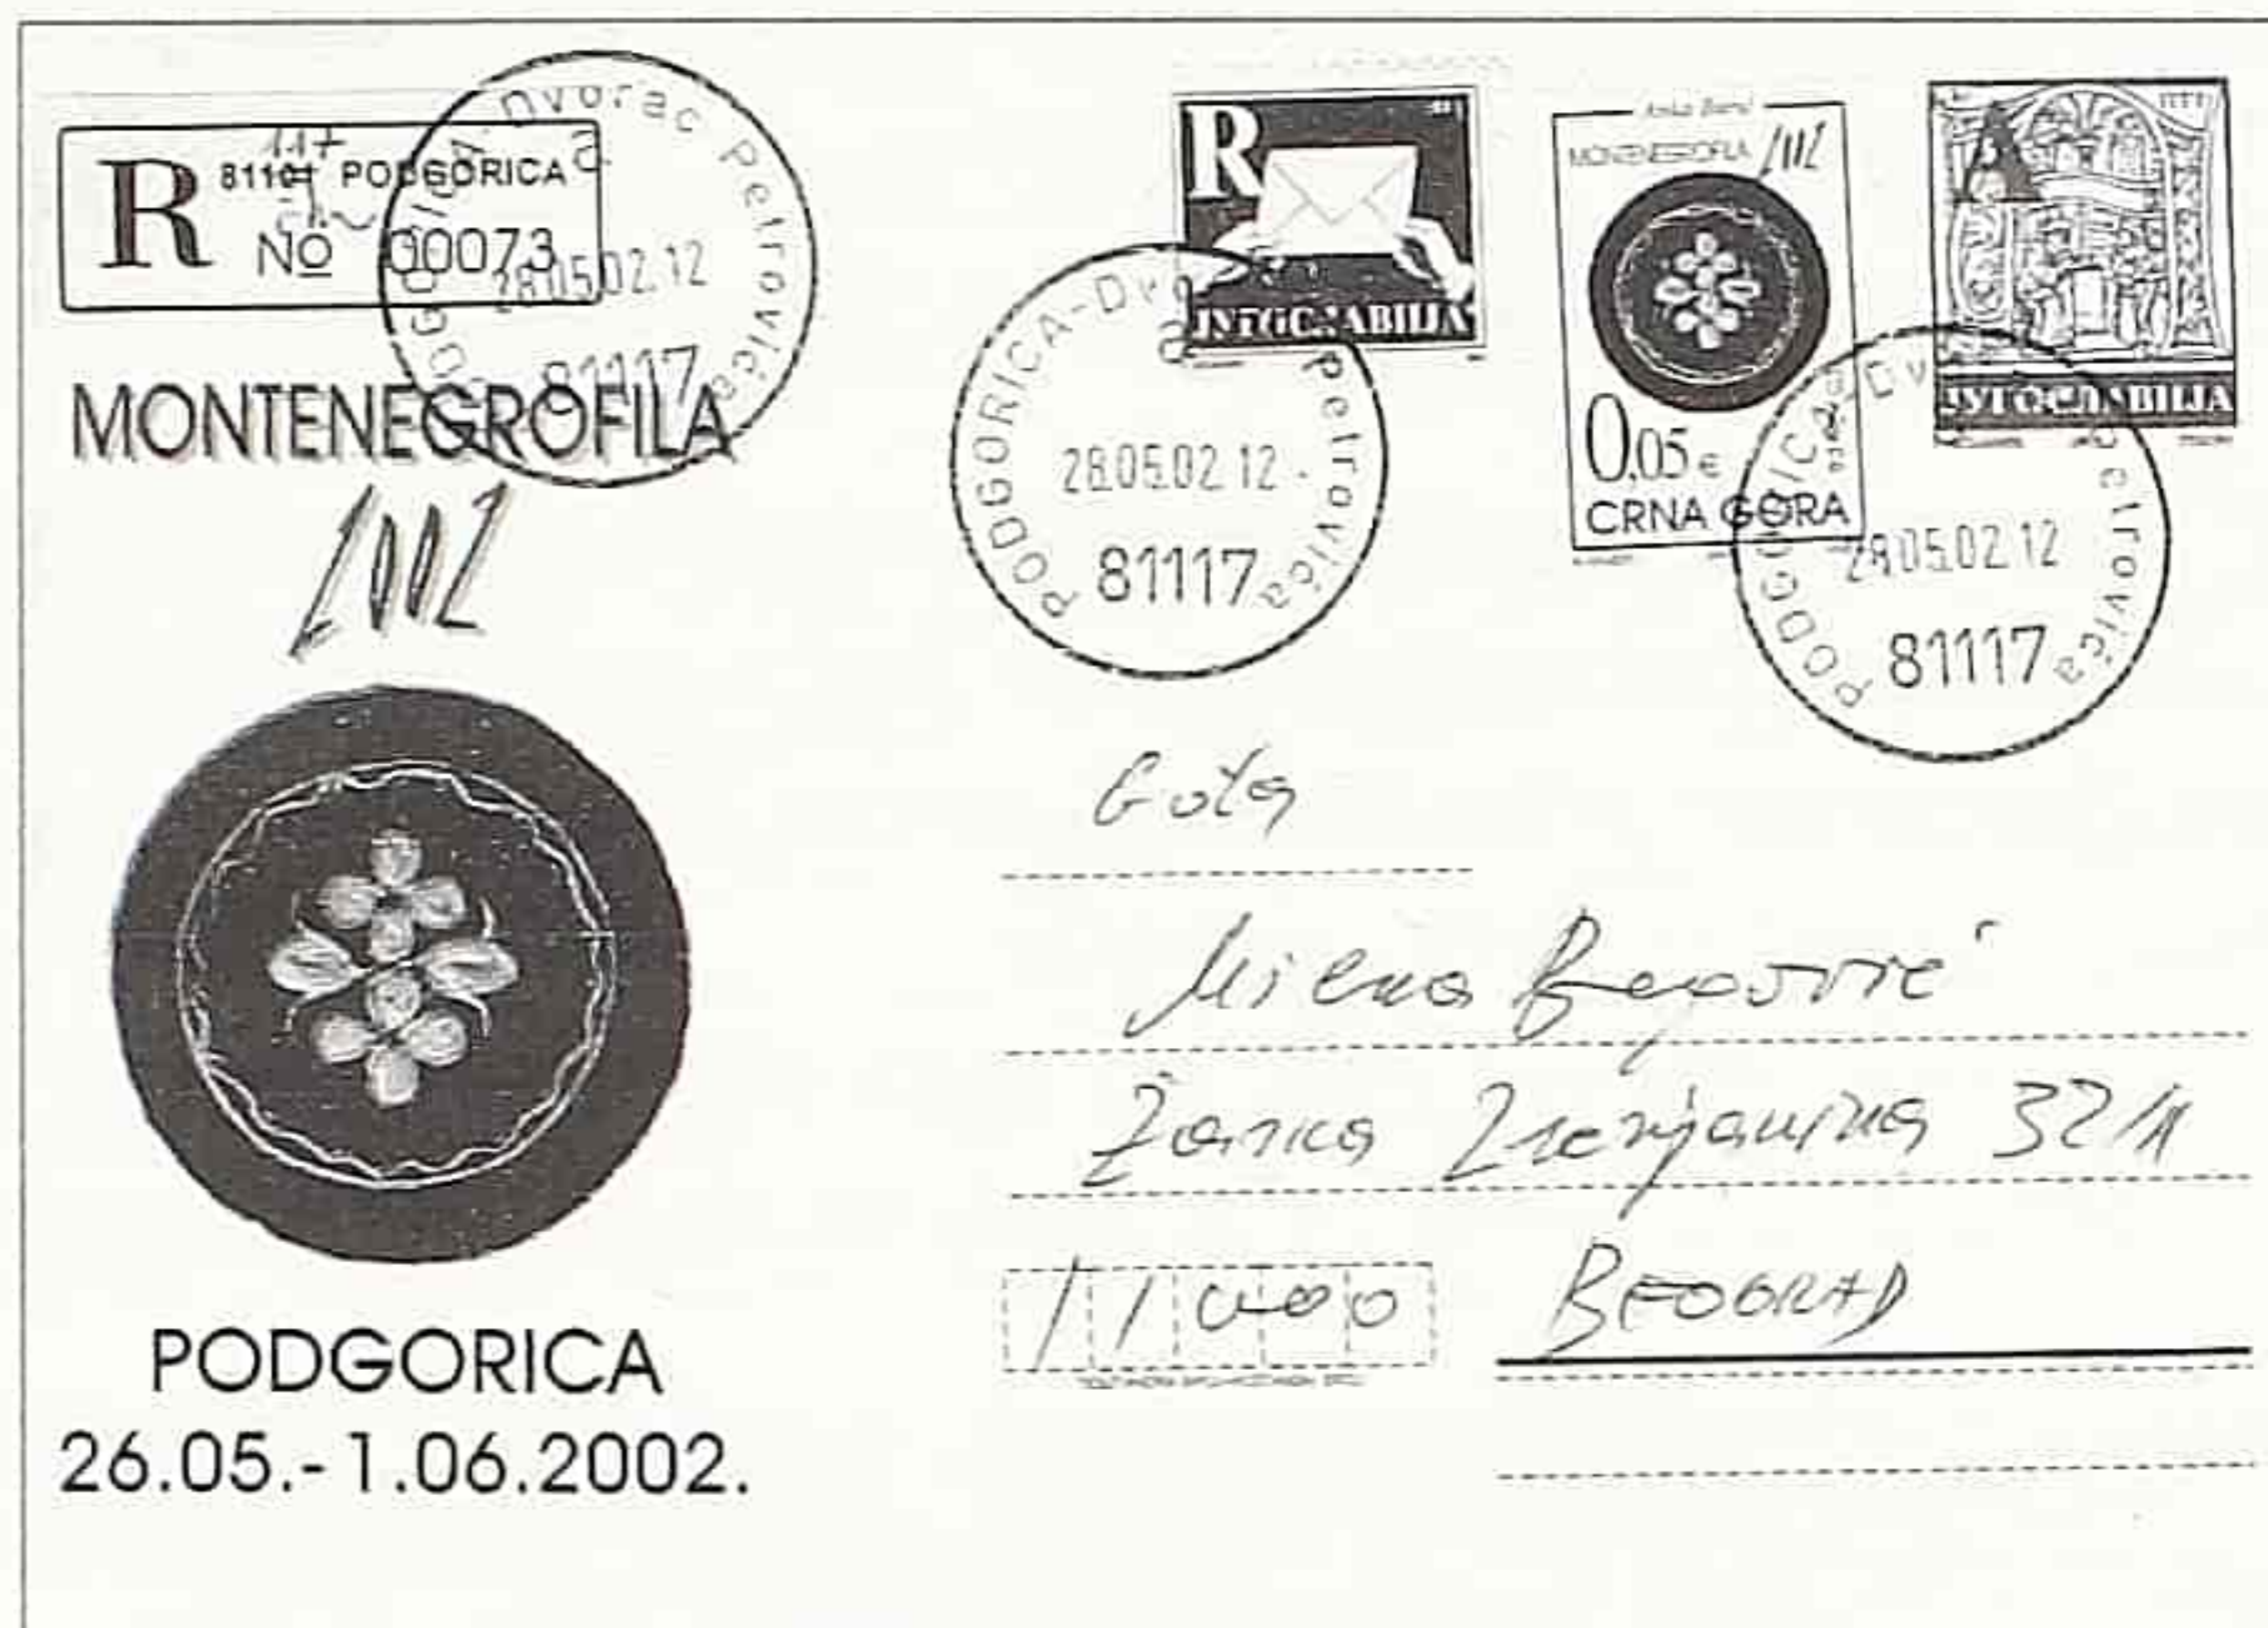 R 81101 PODGORICA
117
No 00073
PODGORICA-Dvorac Petrovića
a
28.05.02.12
81117
MONTENEGROFILA
2002
PODGORICA
26.05.-1.06.2002.
R
ЈУГОСЛАВИЈА
PODGORICA-Dvorac Petrovića
a
28.05.02 12
81117
MONTENEGROFILA 2002
0,05 €
CRNA GORA
A
ЈУГОСЛАВИЈА
28.05.02 12
81117
Gđa
Milena Begović
Žarka Zrenjanina 32/A
11000 BEOGRAD